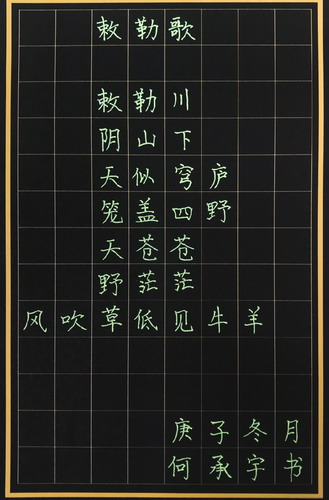 敕勒歌
敕勒川
阴山下
天似穹庐
笼盖四野
天苍苍
野茫茫
风吹草低见牛羊
庚子冬月
何承宇书